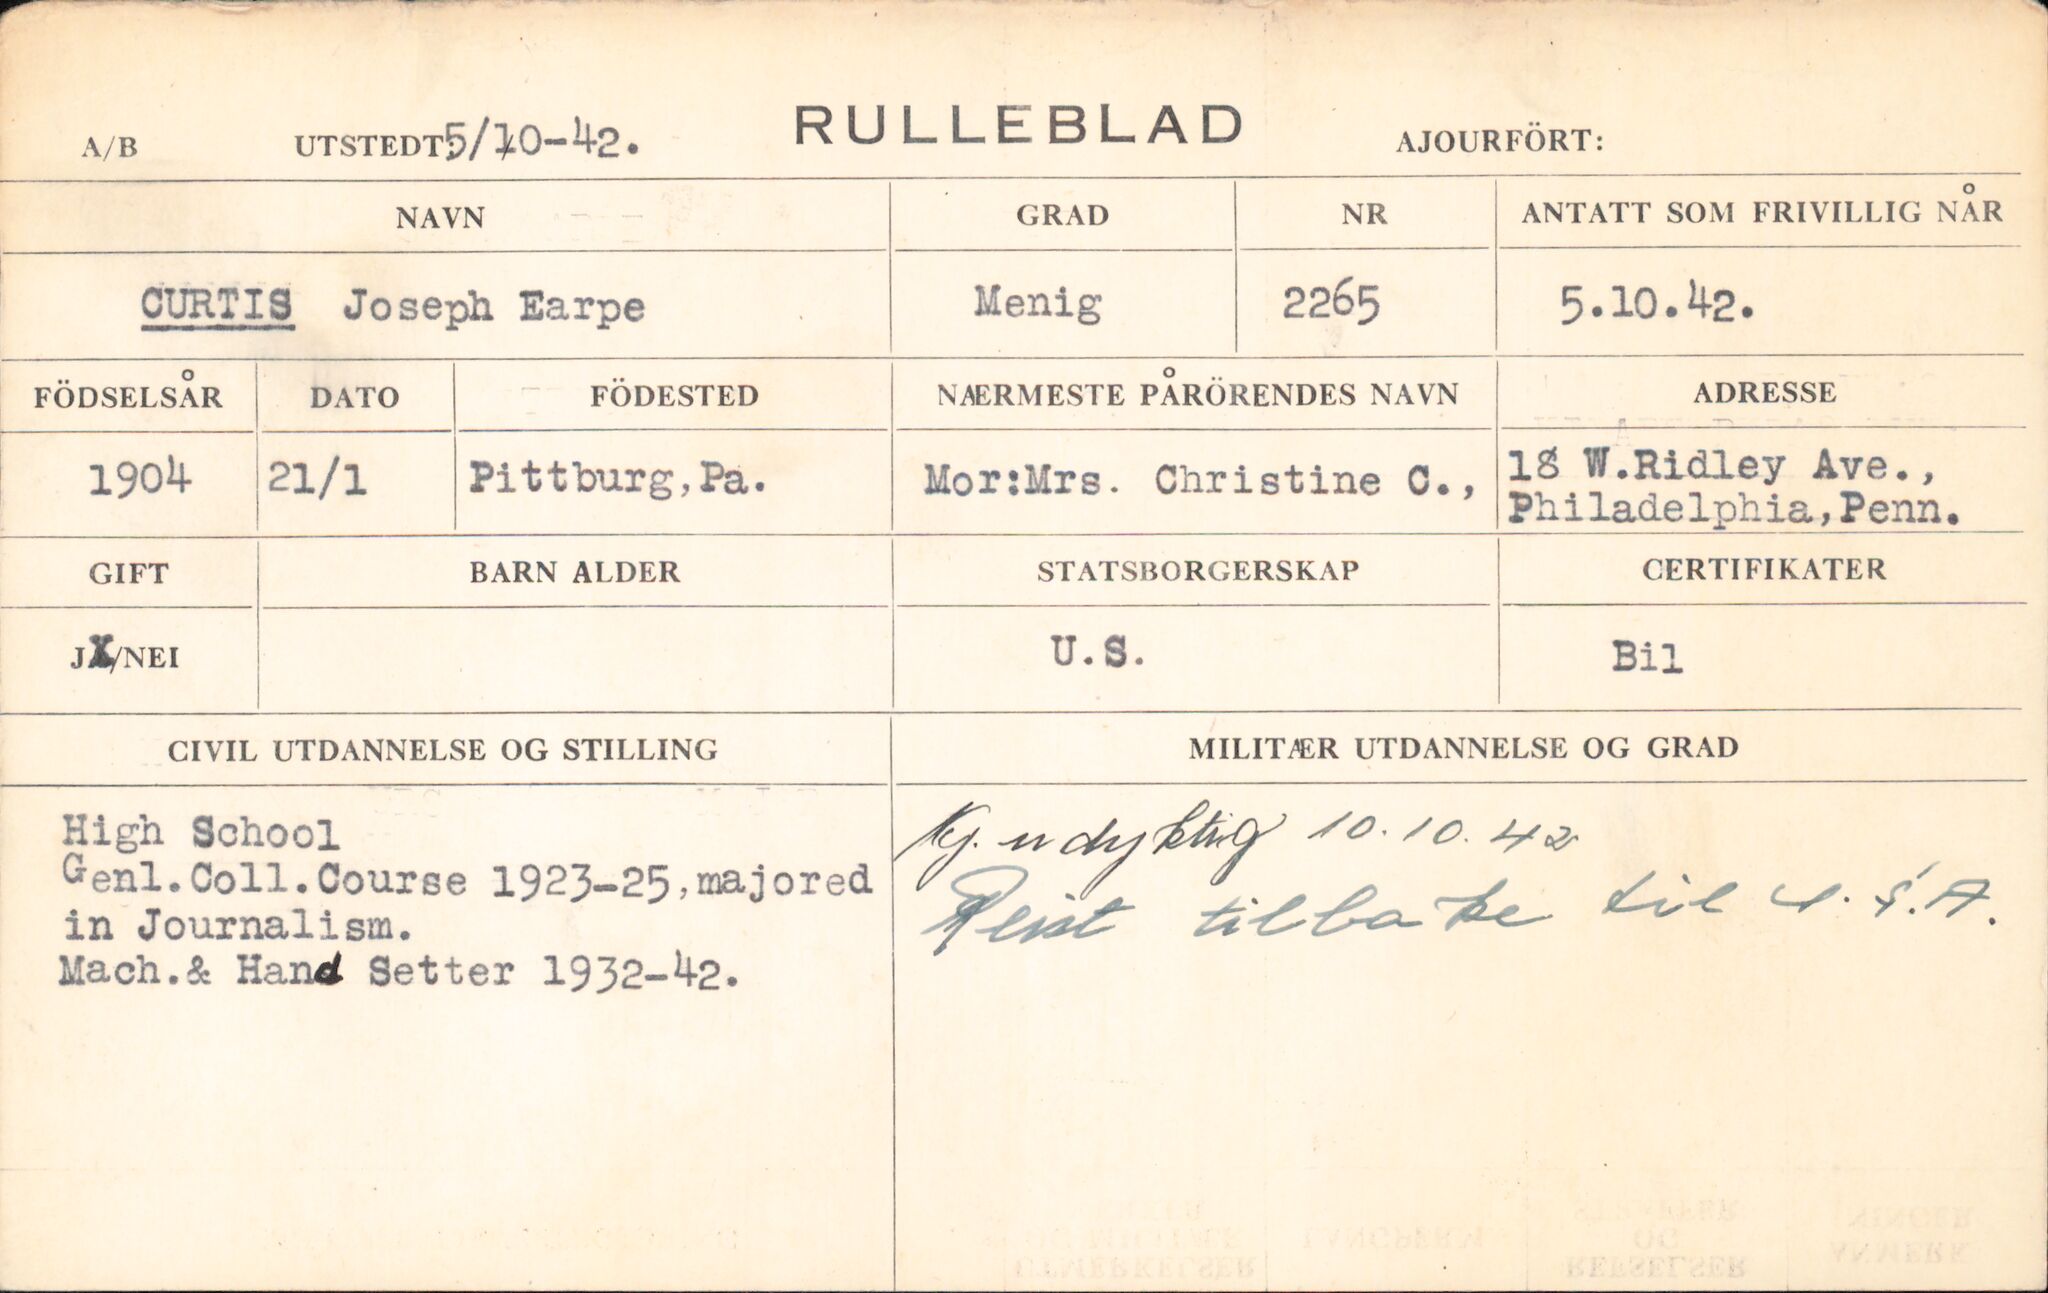 RULLEBLAD
A/B UTSTEDT: 5/10-42. AJOURFÖRT:
NAVN GRAD NR ANTATT SOM FRIVILLIG NÅR
CURTIS Joseph Earpe Menig 2265 5.10.42.
FÖDSELSÅR DATO FÖDESTED NÆRMESTE PÅRÖRENDES NAVN ADRESSE
1904 21/1 Pittburg,Pa. Mor:Mrs. Christine C., 18 W.Ridley Ave.,
Philadelphia,Penn.
GIFT BARN ALDER STATSBORGERSKAP CERTIFIKATER
JX/NEI U.S. Bil
CIVIL UTDANNELSE OG STILLING MILITÆR UTDANNELSE OG GRAD
High School
Genl.Coll.Course 1923-25,majored
in Journalism.
Mach.& Hand Setter 1932-42.
Kj. udyktig 10.10.42
Reist tilbake til U.S.A.